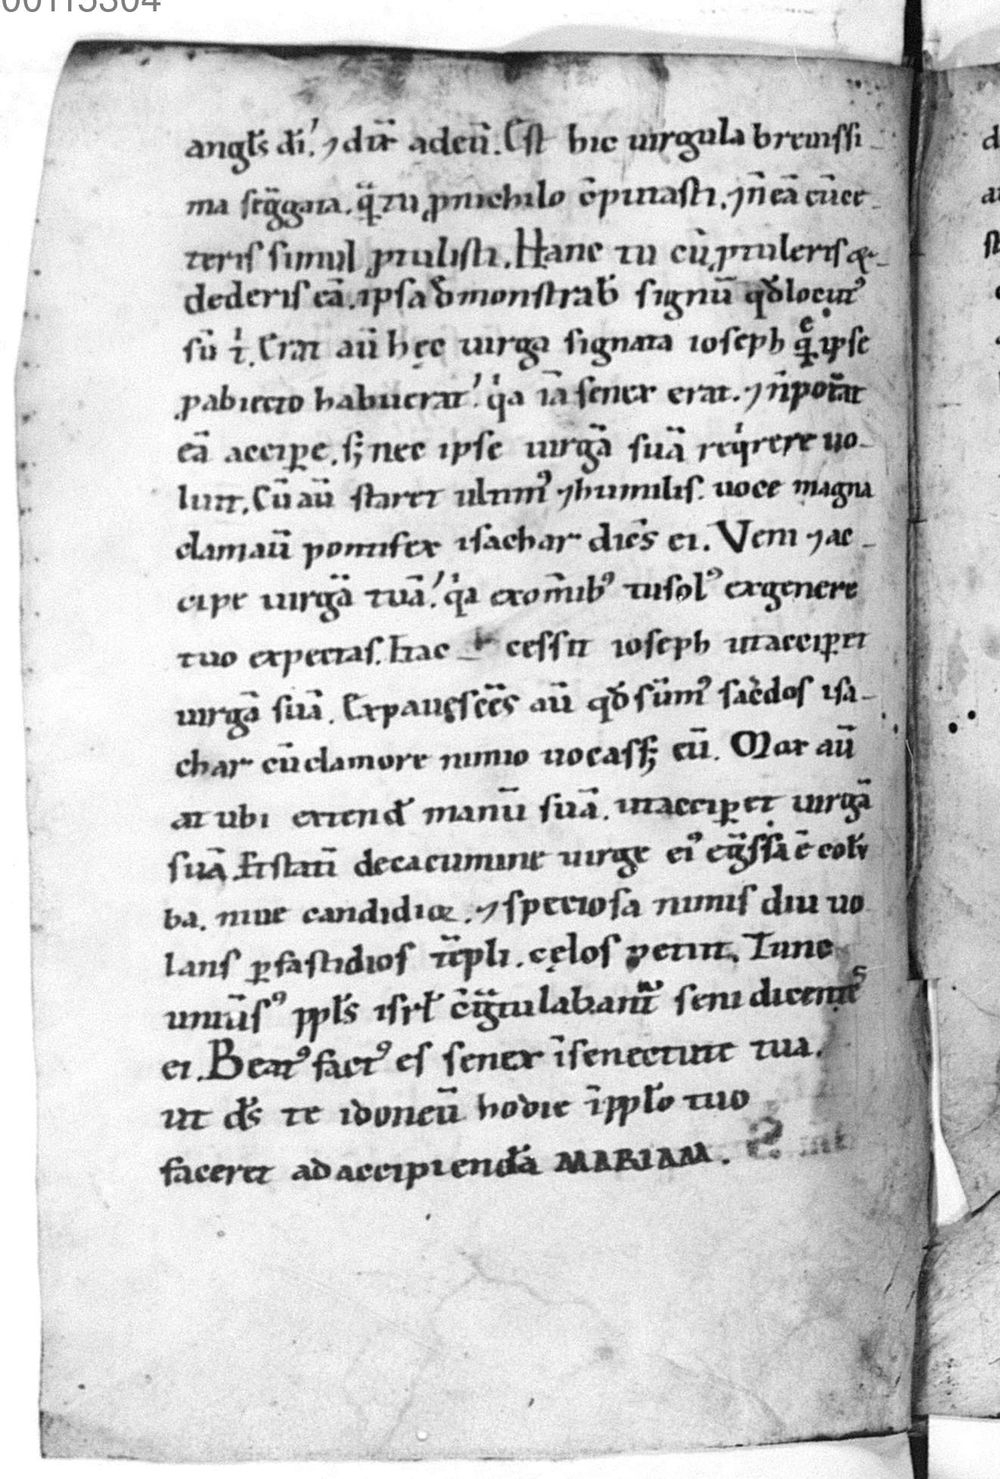 00115304
angl̄s dī. ⁊ dix̄ adeū. Est hic uirgula breuissi-
ma seḡgata. q̄ tu ꝓnichilo ꝯputasti. ⁊ n̄ eā cū ce-
teris simul ꝓtulisti. Hanc tu cū ꝓtuleris &
dederis eā. ipsa dēmonstrab̄ signū qd̄ locut᷒
sū t͛. Erat aū hęc uirga signata ioseph q̄ͤ ipse
ꝓabiecto habuerat. q͛a iā senex erat. ⁊ n̄ potāt
eā accip̱e. s; nec ipse uirgā suā req͛rere uo-
luit. Cū aū staret ultim᷒ ⁊ humilis. uoce magna
clamaū pontifex isachar dicēs ei. Veni ⁊ ac-
cipe uirgā tuā. q͛a exom̄ib᷒ tu sol᷒ exgenere
tuo expectas. Et ac cessit ioseph ut accip̱et
uirgā suā. Expauęscēs aū qd̄ sūm᷒ sac̄dos isa-
char cū clamore nimio uocass; eū. Mox aū
at ubi extend̄ manū suā. ut accip̱et uirgā
suā. Et statī decacumine uirge ei᷒ eḡssa ē colū
ba. niue candidior. ⁊ speciosa nimis diu uo
lans p̱ fastidios tēpli. cęlos petiit. Tunc
uniūs᷒ ppl̄s isrl̄ c̄ḡtulabant᷑ seni dicentes
ei. Beat᷒ fact᷒ es senex ī senectute tua.
ut ds̄ te idoneū hodie ī ppl̄o tuo
faceret ad accipiendā MARIAM.